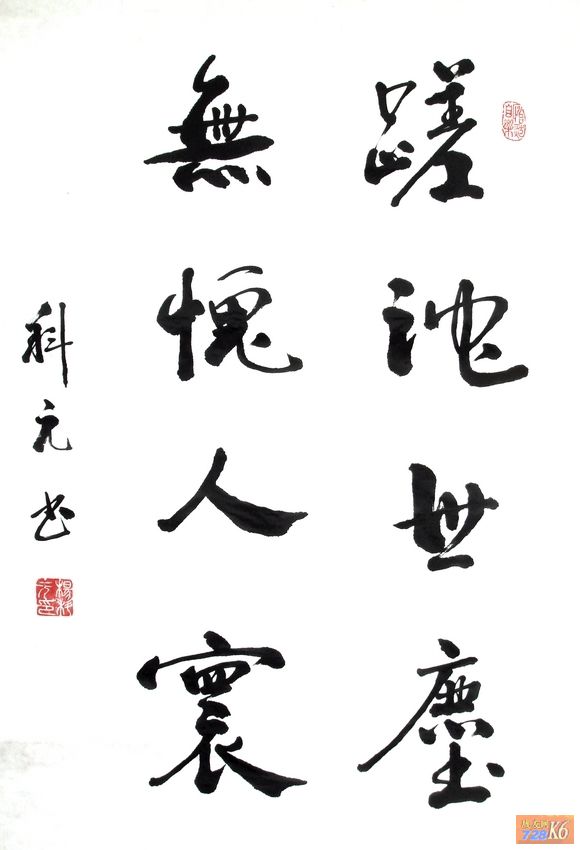 蹉跎世塵
無愧人寰
科元书
楊科元印
728K6